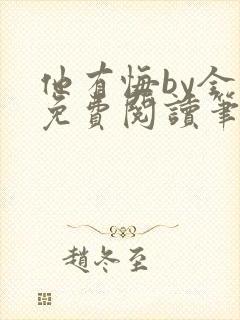 他有悔by金
免費閱讀筆
趙冬至